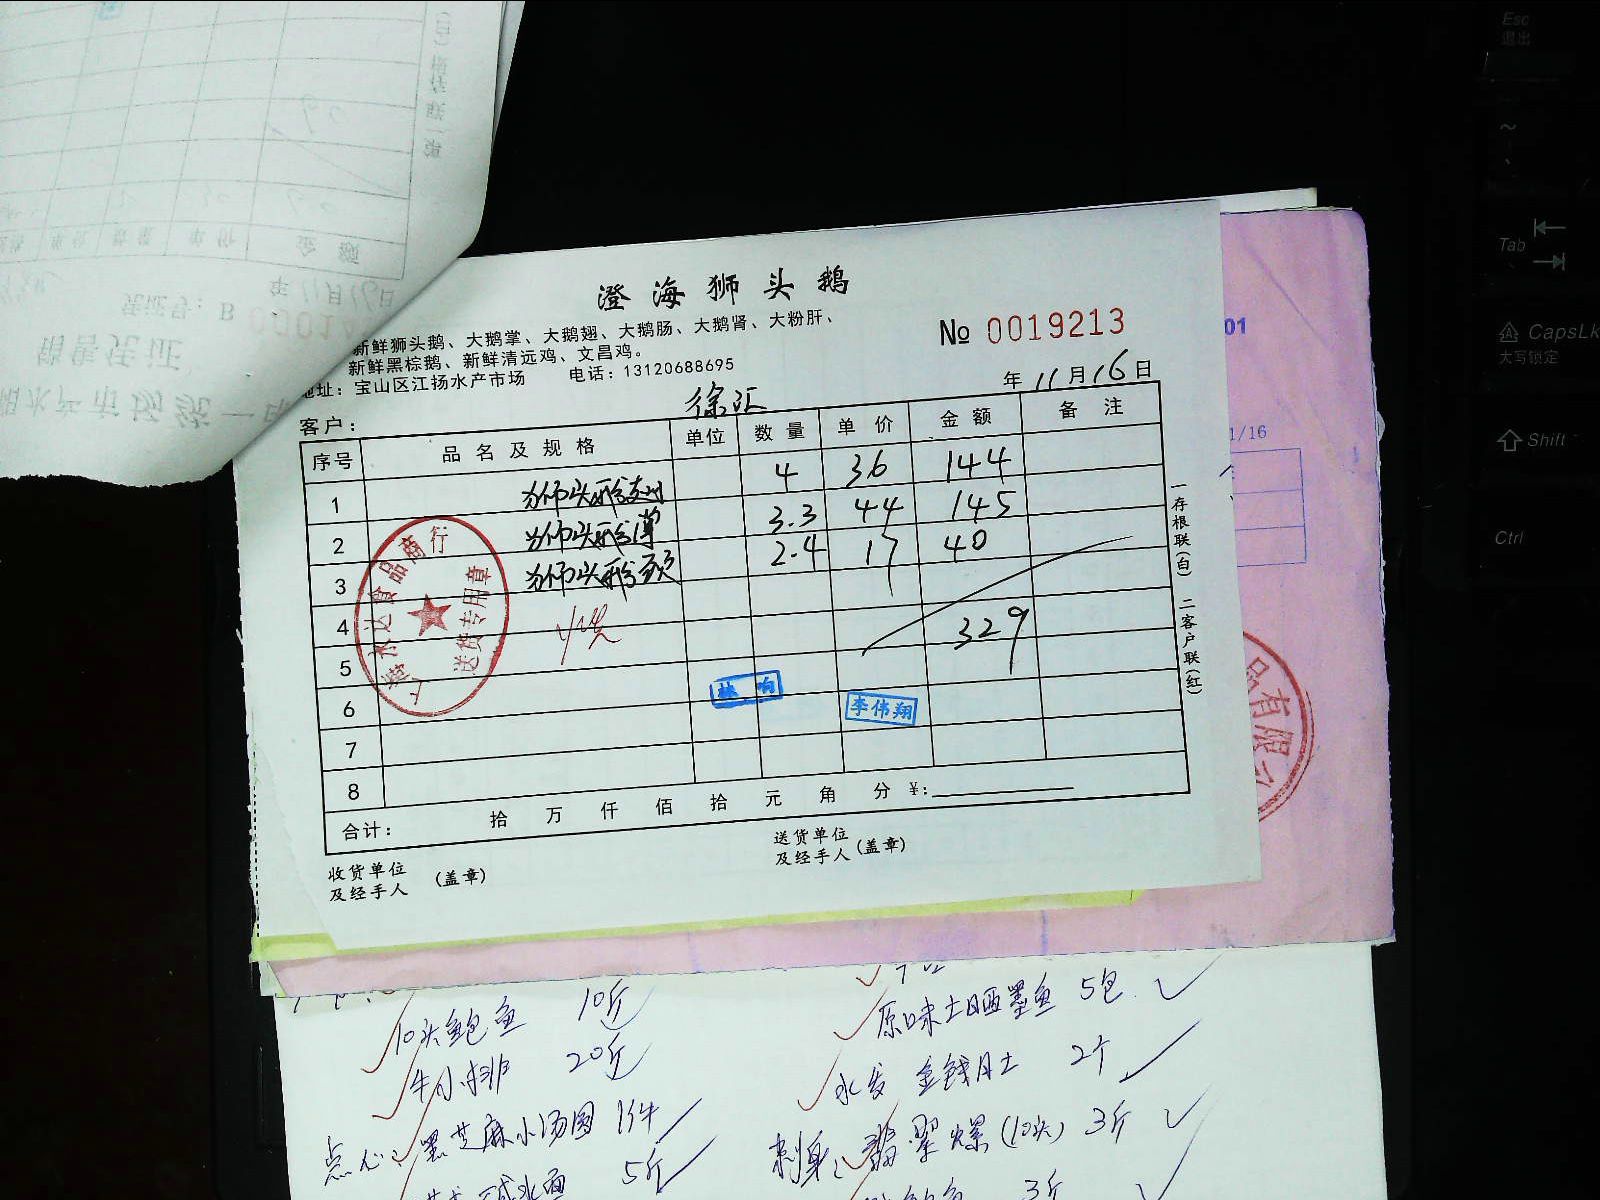 澄海狮头鹅
新鲜狮头鹅、大鹅掌、大鹅翅、大鹅肠、大鹅肾、大粉肝、
新鲜黑棕鹅、新鲜清远鸡、文昌鸡。
地址：宝山区江扬水产市场 电话：13120688695
№ 0019213
年 11 月 16 日
客户： 徐汇
序号 品名及规格 单位 数量 单价 金额 备注
1 狮头鹅翅 4 36 144
2 狮头鹅掌 3.3 44 145
3 狮头鹅颈 2.4 17 40
4
5 329
6
7
8
合计： 拾 万 仟 佰 拾 元 角 分 ¥：
收货单位
及经手人 (盖章)
送货单位
及经手人 (盖章)
一存根联(白) 二客户联(红)
食品商行
送货专用章
李伟翔
01
1/16
品有限公
10头鲍鱼 10斤
牛小排 20斤
点心：黑芝麻小汤圆 1件
5斤
原味土晒墨鱼 5包
水发金钱肚 2个
刺身：翡翠螺(10头) 3斤
3斤
销售凭证
凭证号：B
年 11 月 16 日
金额
单价
数量
Esc
退出
Tab
CapsLk
大写锁定
Shift
Ctrl